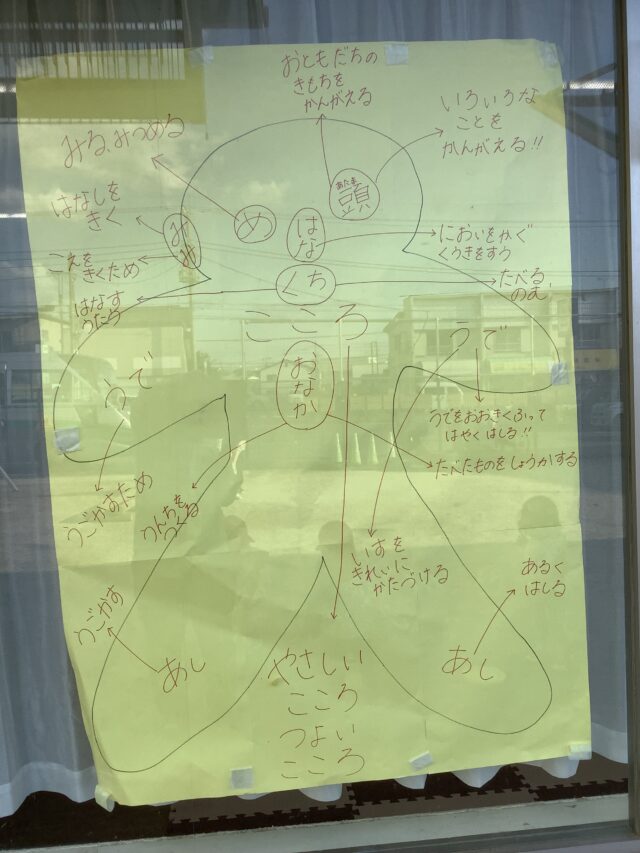 おともだちの
きもちを
かんがえる
いろいろな
ことを
かんがえる!!
みる、みつめる
あたま
頭
はなしを
きく
みみ
め
はな
においをかぐ
くうきをすう
こえを
きくため
くち
たべる
のむ
はなす
うたう
こころ
うで
うで
おなか
うでをおおきくふって
はやくはしる!!
たべたものをしょうかする
うごかすため
うんちを
つくる
いすを
きれいに
かたづける
あるく
はしる
うごかす
あし
あし
やさしい
こころ
つよい
こころ